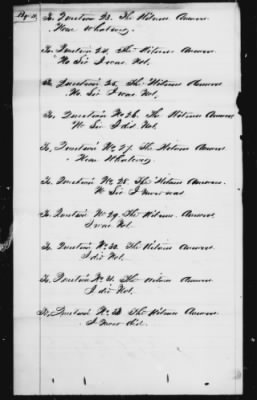 To Question 23. The Witness Answers
None Whatever.
To Question 24. The Witness Answers
No Sir I was Not.
To Question 25. The Witness Answers
No Sir I was Not.
To Question No 26. The Witness Answers
No Sir I did Not.
To Question No 27. The Witness Answers
None Whatever
To Question No 28. The Witness Answers
No Sir I never was
To Question No 29. The Witness Answers
I was Not.
To Question No 30. The Witness Answers
I did Not.
To Question No 31. The Witness Answers
I did Not.
To Question No The Witness Answers
I never did.